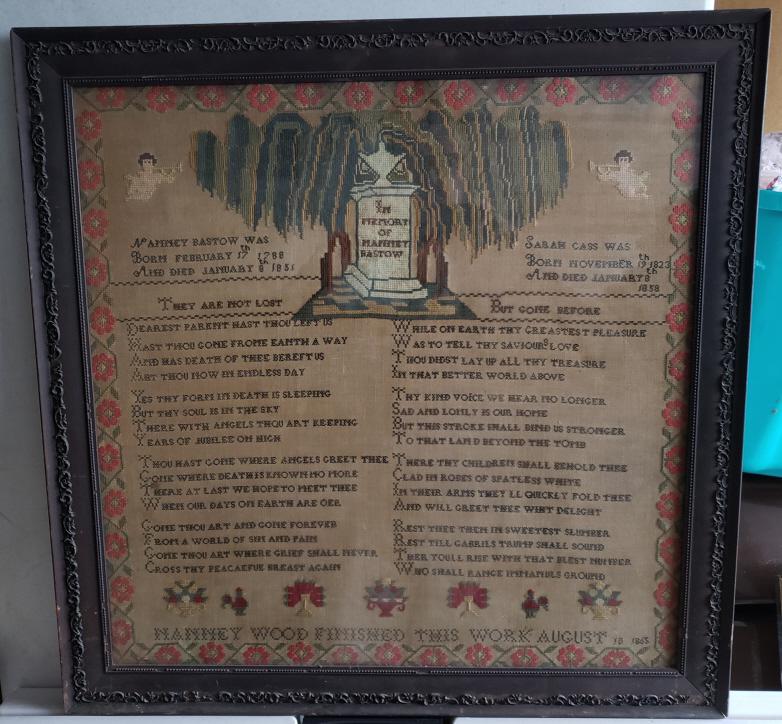 IN
MEMORY
OF
NANNEY
BASTOW
NANNEY BASTOW WAS
BORN FEBRUARY 17th 1788
AND DIED JANUARY 8th 1851
SARAH CASS WAS
BORN NOVEMBER 19th 1823
AND DIED JANUARY 8th
1858
THEY ARE NOT LOST
BUT GONE BEFORE
DEAREST PARENT HAST THOU LEFT US
HAST THOU GONE FROME EANTH A WAY
AND HAS DEATH OF THEE BEREFT US
ART THOU NOW IN ENDLESS DAY
YES THY FORM IN DEATH IS SLEEPING
BUT THY SOUL IS IN THE SKY
THERE WITH ANGELS THOU ART KEEPING
YEARS OF JUBILEE ON HIGH
THOU HAST GONE WHERE ANGELS GREET THEE
GONE WHERE DEATH IS KNOWN NO MORE
THERE AT LAST WE HOPE TO MEET THEE
WHEN OUR DAYS ON EARTH ARE OER
GONE THOU ART AND GONE FOREVER
FROM A WORLD OF SIN AND PAIN
GONE THOU ART WHERE GRIEF SHALL NEVER
CROSS THY PEACAEFUL BREAST AGAIN
WHILE ON EARTH THY GREASTEST PLEASURE
WAS TO TELL THY SAVIOURS LOVE
THOU DIDST LAY UP ALL THY TREASURE
IN THAT BETTER WORLD ABOVE
THY KIND VOICE WE HEAR NO LONGER
SAD AND LONLY IS OUR HOME
BUT THIS STROKE SHALL BIND US STRONGER
TO THAT LAND BEYOND THE TOMB
THERE THY CHILDREN SHALL BEHOLD THEE
CLAD IN ROBES OF SPATLESS WHITE
IN THEIR ARMS THEY LL QUICKLY FOLD THEE
AND WILL GREET THEE WIHT DELIGHT
REST THEE THEN IN SWEETEST SLUMBER
REST TILL GABRILS TRUMP SHALL SOUND
THER YOULL RISE WITH THAT BLEST NUMBER
WHO SHALL RANGE IMMANULS GROUND
NANNEY WOOD FINISHED THIS WORK AUGUST 18 1863